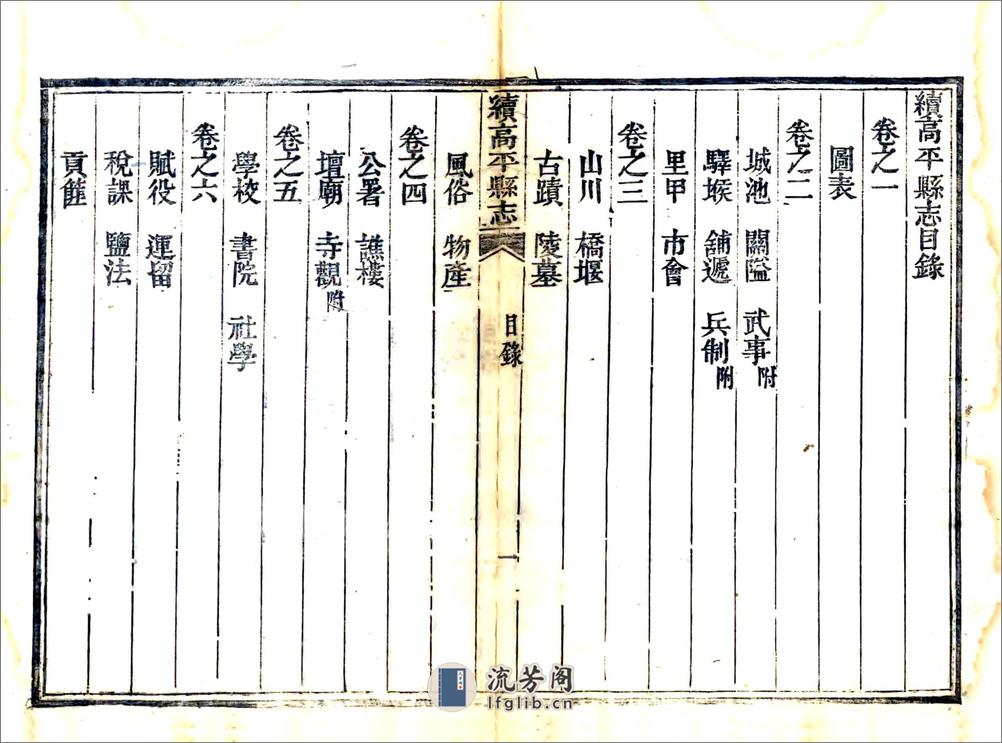 續高平縣志目錄
卷之一
圖表
卷之二
城池 關隘 武事附
驛堠 舖遞 兵制附
里甲 市會
卷之三
山川 橋堰
古蹟 陵墓
續高平縣志 目錄 一
風俗 物產
卷之四
公署 譙樓
壇廟 寺觀附
卷之五
學校 書院 社學
卷之六
賦役 運留
稅課 鹽法
貢篚
流芳阁
lfglib.cn